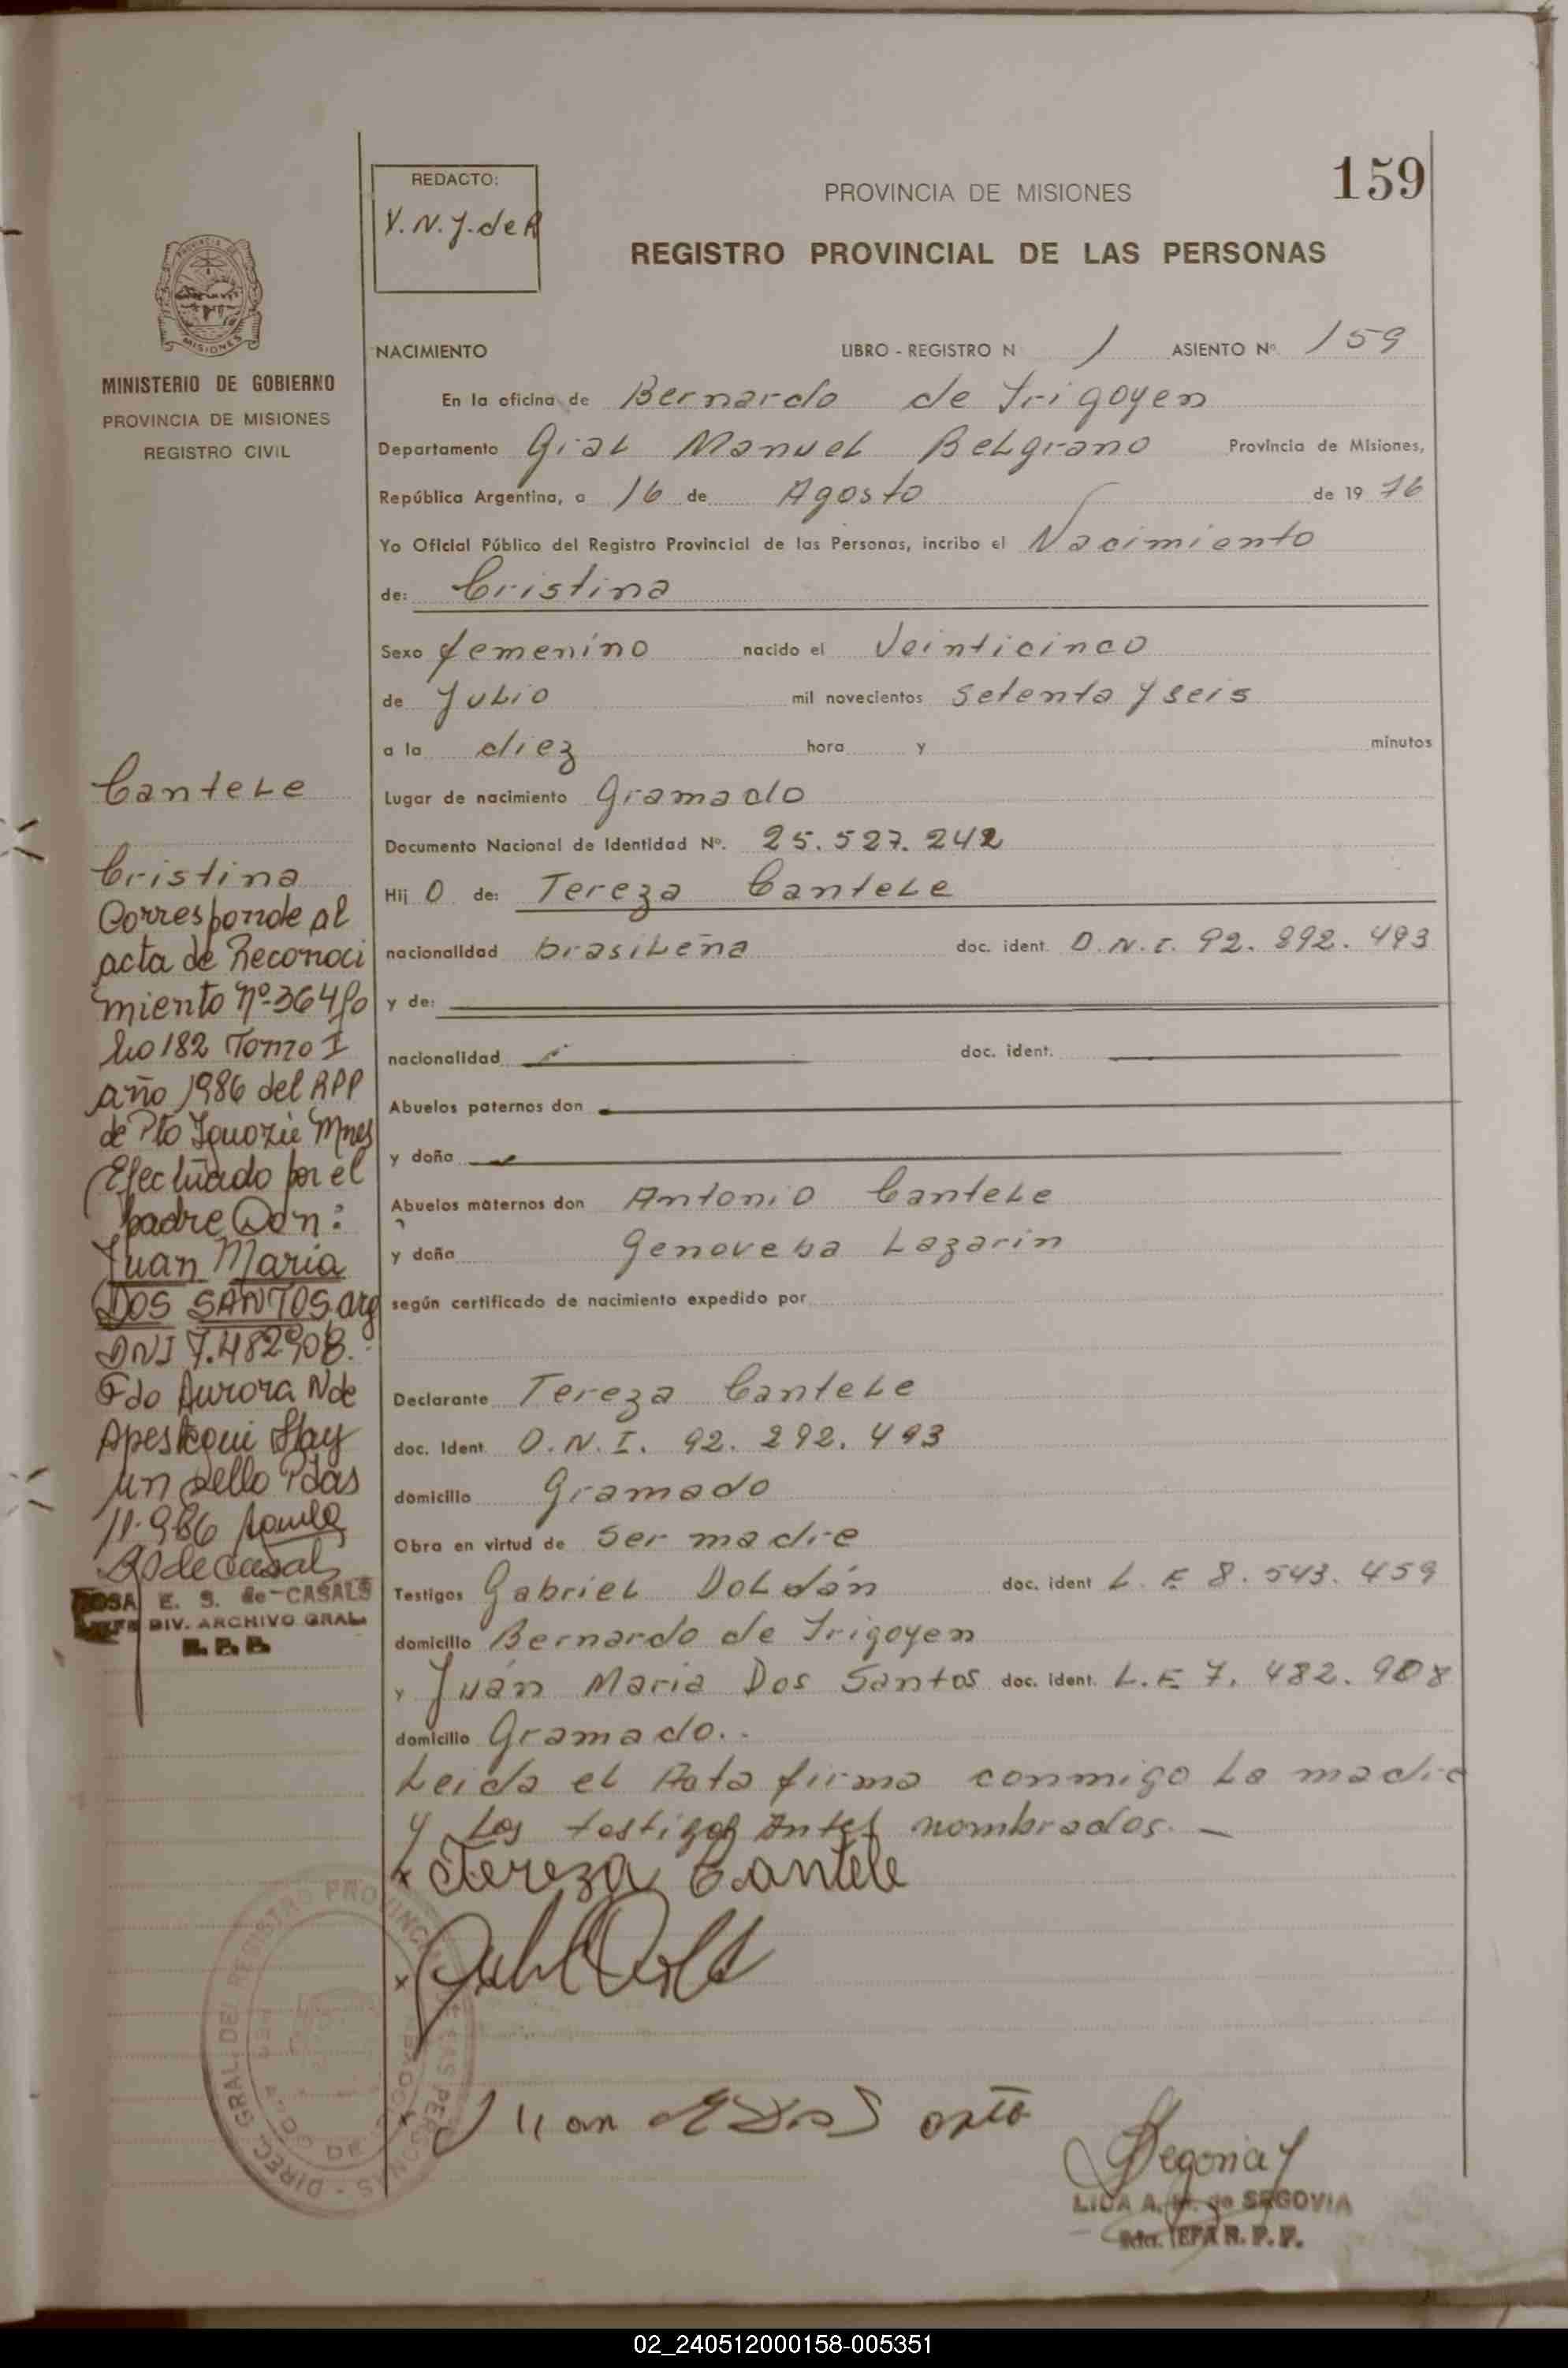 159
REDACTO:
Y. N. J. de R
PROVINCIA DE MISIONES
REGISTRO PROVINCIAL DE LAS PERSONAS
MISIONES
MINISTERIO DE GOBIERNO
PROVINCIA DE MISIONES
REGISTRO CIVIL
NACIMIENTO LIBRO - REGISTRO N 1 ASIENTO Nº. 159
En la oficina de Bernardo de Irigoyen
Departamento Gral Manuel Belgrano Provincia de Misiones,
República Argentina, a 16 de Agosto de 19 76
Yo Oficial Público del Registro Provincial de las Personas, incribo el Nacimiento
de: Cristina
Sexo femenino nacido el Veinticinco
de Julio mil novecientos setenta y seis
a la diez hora y minutos
Lugar de nacimiento Gramado
Documento Nacional de Identidad Nº. 25.527.242
Hij O de: Tereza Cantele
nacionalidad brasileña doc. ident. D.N.I. 92.892.493
y de:
nacionalidad doc. ident.
Abuelos paternos don
y doña
Abuelos maternos don Antonio Cantele
y doña Genovesa Lazarin
según certificado de nacimiento expedido por
Declarante Tereza Cantele
doc. Ident D.N.I. 92.292.493
domicilio Gramado
Obra en virtud de ser madre
Testigos Gabriel Doldán doc. ident L.E 8.543.459
domicilio Bernardo de Irigoyen
y Juán Maria Dos Santos doc. ident. L.E 7.482.908
domicilio Gramado..
Leida el Acta firma conmigo la madre
y los testigos Antes nombrados. —
x Tereza Cantele
Cantele
Cristina
Corresponde al
acta de Reconoci
miento Nº 364 fo
lio 182 Tomo I
año 1986 del RPP
de Pto Iguazú Mnes
Efectuado por el
padre Don:
Juan Maria
DOS SANTOS arg
DNI 7.482908.
Fdo Aurora N de
Hay
un sello Pdas
11.986
R S de Casals
ROSA E. S. de CASALS
JEFE DIV. ARCHIVO GRAL.
R. P. P.
DIREC. GRAL. DEL REGISTRO PROVINCIAL DE LAS PERSONAS
Segovia
LIDA A. de SEGOVIA
2da. JEFA R. P. P.
02_240512000158-005351